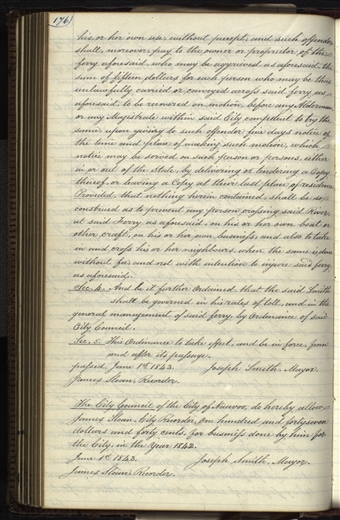 176
his, or her own use, without precept; and such offender
shall, moreover, pay to the owner or proprietor of the
ferry aforesaid, who may be aggrieved as aforesaid, the
sum of fifteen dollars for each person who may be thus
unlawfully carried or conveyed across said ferry as
aforesaid; to be recovered on motion, before any Alderman
or any Magistrate within said City competent to try the
same; upon giving to such offender five days notice of
the time and place of making such motion, which
notice may be served on such person or persons, either
in or out of the State, by delivering or tendering a Copy
thereof, or leaving a Copy at their last place of residence
Provided, that nothing herein contained, shall be so
construed as to prevent any person crossing said River,
at said Ferry, as aforesaid, on his or her own boat or
other craft, on his or her own business, and also to take
in and cross his or her neighbours, when the same is done
without fee, and not with intention to injure said ferry
as aforesaid.
Sec. 4. And be it further Ordained, that the said Smith
shall be governed in his rates of toll, and in the
general management of said ferry, by Ordinance of said
City Council.
Sec. 5. This Ordinance to take effect, and be in force, from
and after its passage.
passed, June 1st 1843. Joseph Smith, Mayor.
James Sloan, Recorder.
The City Council of the City of Nauvoo, do hereby allow
James Sloan, City Recorder, one hundred and forty seven
dollars and forty cents, for business done by him for
the City, in the Year 1842.
June 1st 1843. Joseph Smith, Mayor.
James Sloan, Recorder.